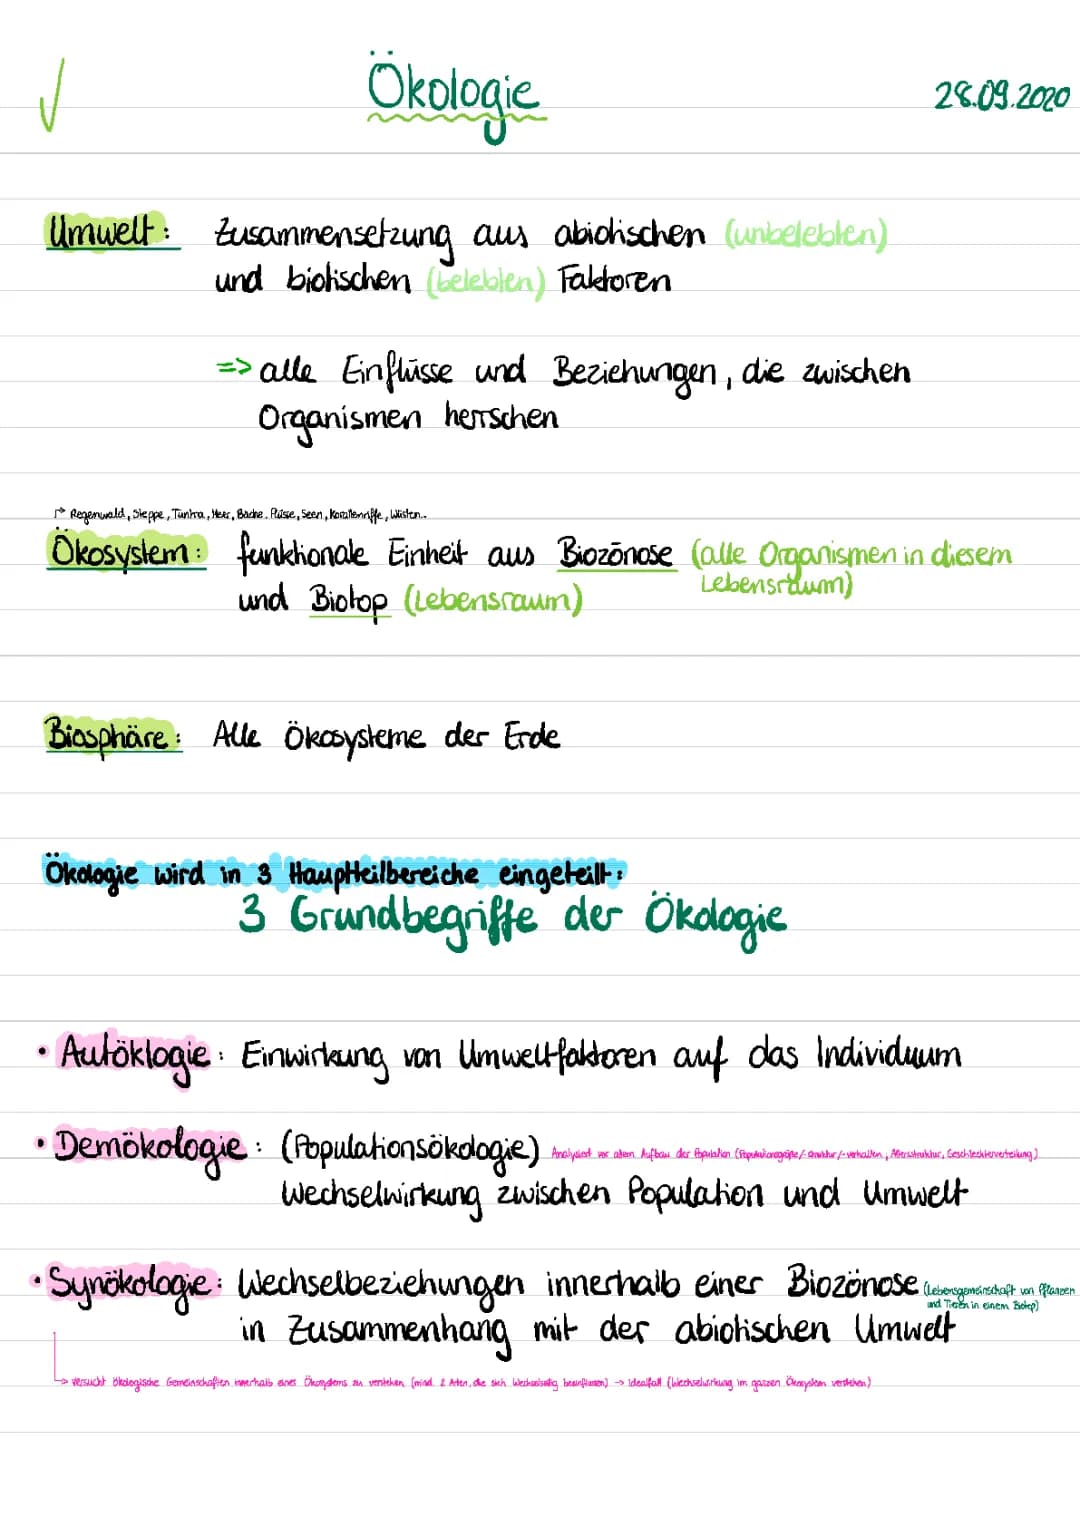 Ökologie
28.09.2020
Umwelt: Zusammensetzung aus abiotischen (unbelebten)
und biotischen (belebten) Faktoren
=> alle Einflüsse und Beziehungen, die zwischen
Organismen herrschen
Regenwald, Steppe, Tuntra, Meer, Bäche, Flüsse, Seen, Korallenriffe, Wüsten..
Ökosystem: funktionale Einheit aus Biozönose (alle Organismen in diesem
Lebensraum)
und Biotop (Lebensraum)
Biosphäre: Alle Ökosysteme der Erde
Ökologie wird in 3 Hauptteilbereiche eingeteilt:
3 Grundbegriffe der Ökologie
• Autöklogie: Einwirkung von Umweltfaktoren auf das Individuum
• Demökologie: (Populationsökologie) Analysiert vor allem Aufbau der Population (Populationsgröße/-struktur/-verhalten, Altersstruktur, Geschlechterverteilung)
Wechselwirkung zwischen Population und Umwelt
• Synökologie: Wechselbeziehungen innerhalb einer Biozönose (Lebensgemeinschaft von Pflanzen
und Tieren in einem Biotop)
in Zusammenhang mit der abiotischen Umwelt
versucht ökologische Gemeinschaften innerhalb eines Ökosystems zu verstehen (mind. 2 Arten, die sich wechselseitig beeinflussen) -> Idealfall (Wechselwirkung im ganzen Ökosystem verstehen)